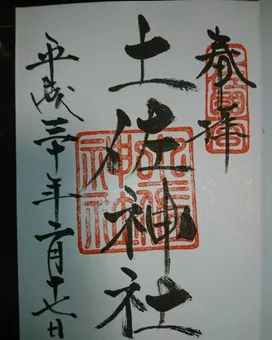 奉拝
土佐神社
土佐
神社
平成三十年二月十七日